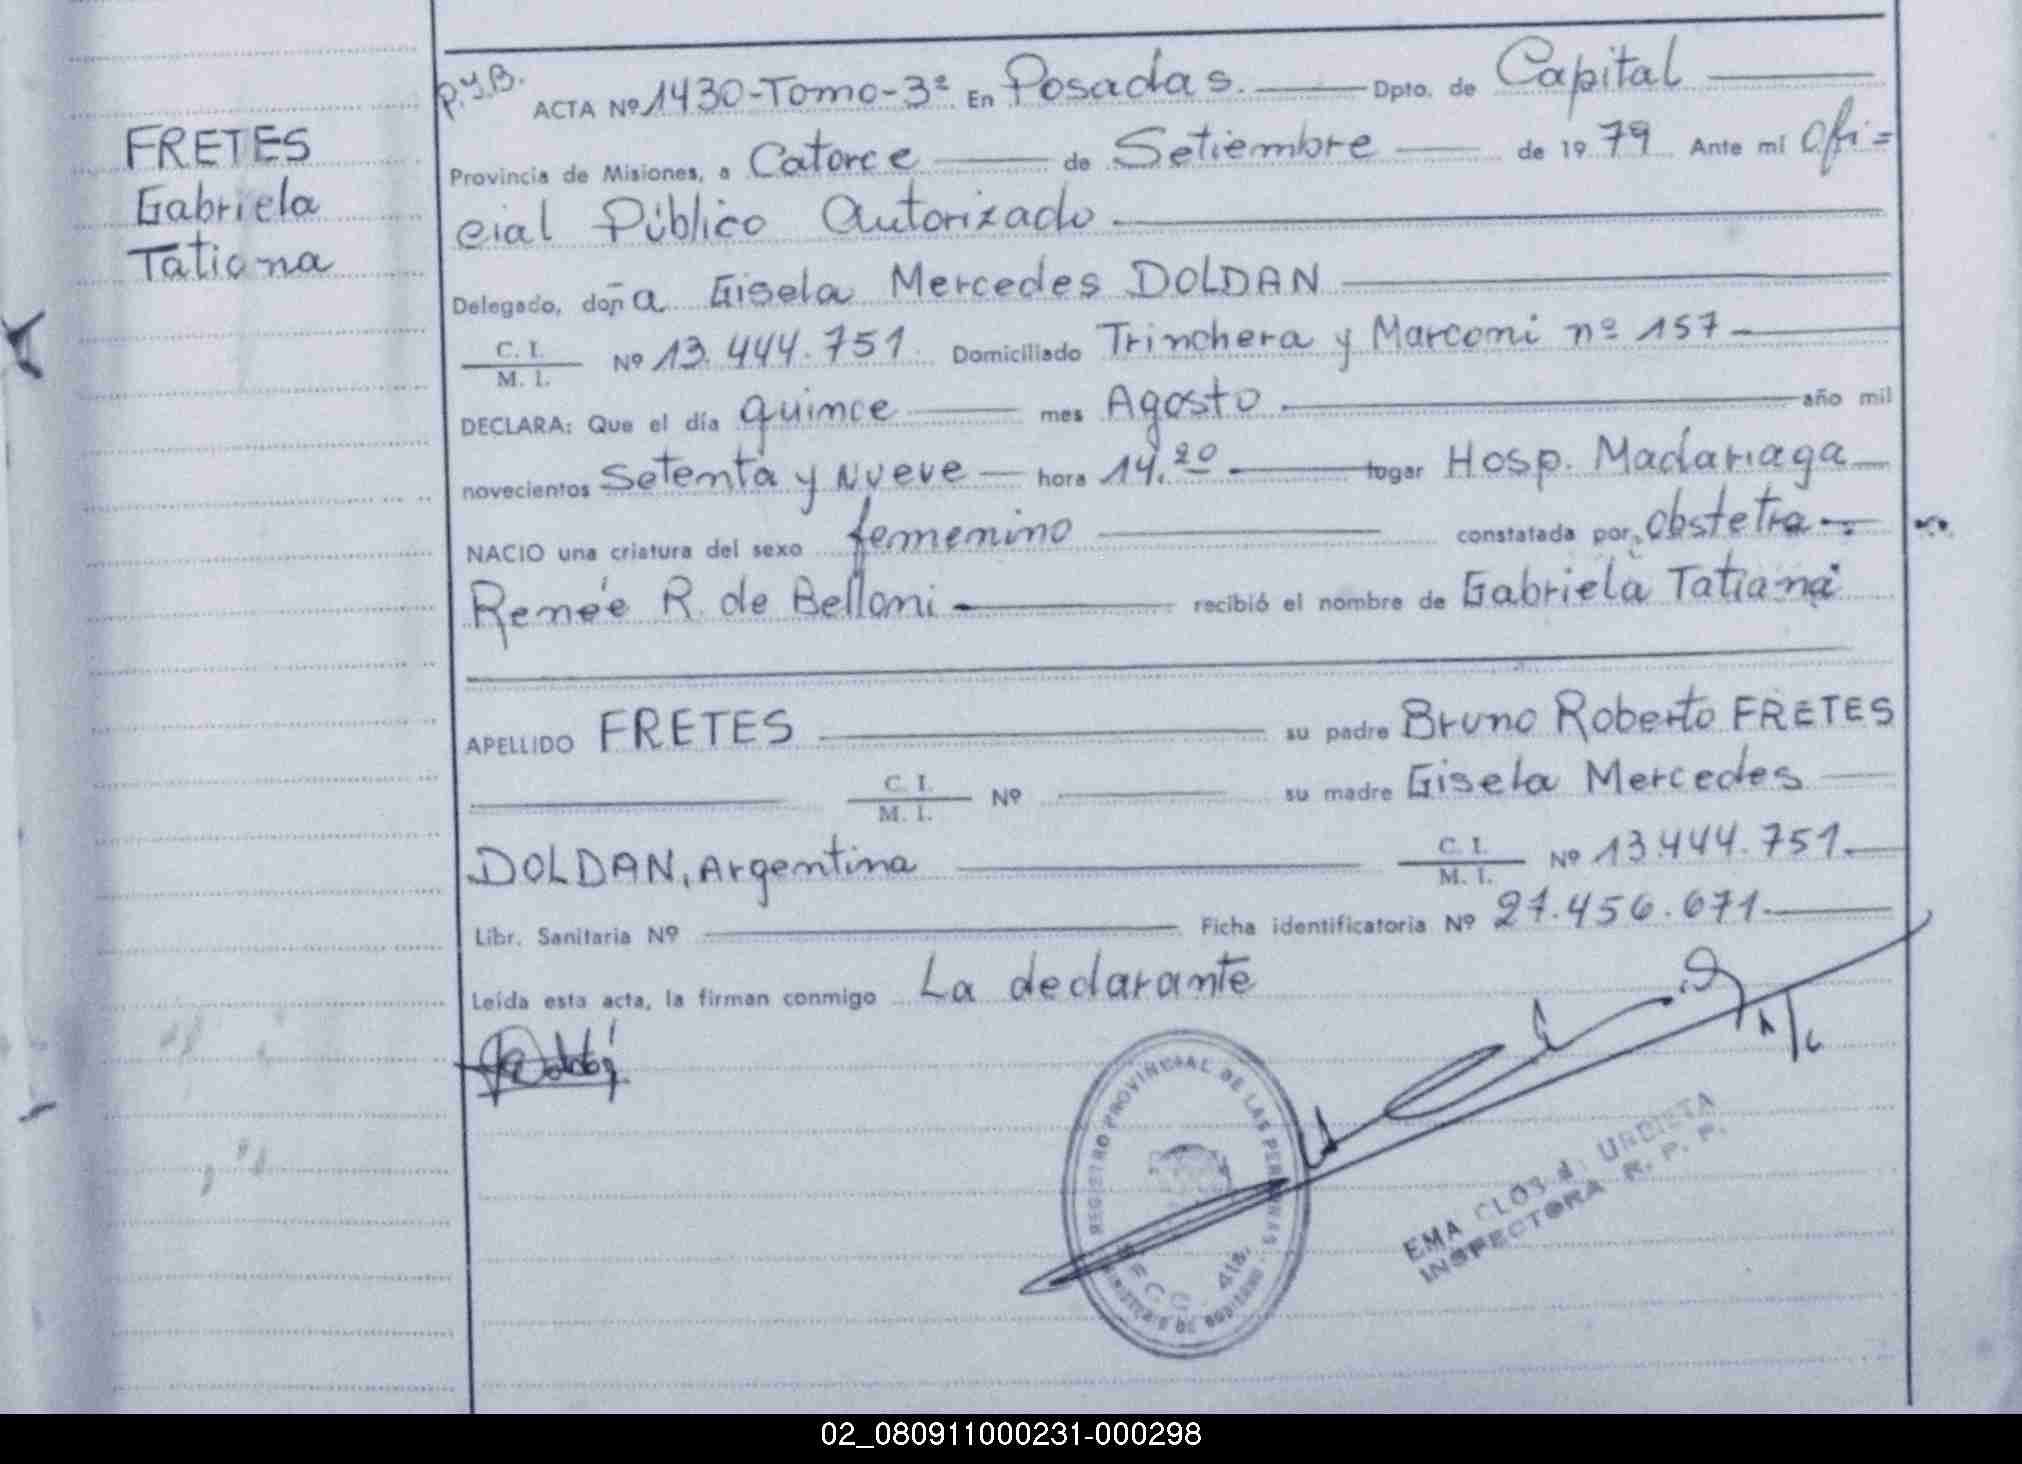 FRETES
Gabriela
Tatiana
P.y.B. ACTA Nº 1430-Tomo-3º En Posadas. Dpto. de Capital
Provincia de Misiones, a Catorce de Setiembre de 1979 Ante mí Ofi=
cial Público Autorizado
Delegado, doña Gisela Mercedes DOLDAN
C. I. / M. I. Nº 13.444.751. Domiciliado Trinchera y Marconi nº 157
DECLARA: Que el día quince mes Agosto año mil
novecientos setenta y nueve hora 14.20 lugar Hosp. Madariaga
NACIO una criatura del sexo femenino constatada por obstetra
Renée R. de Belloni recibió el nombre de Gabriela Tatiana
APELLIDO FRETES su padre Bruno Roberto FRETES
C. I. / M. I. Nº su madre Gisela Mercedes
DOLDAN, Argentina C. I. / M. I. Nº 13.444.751.
Libr. Sanitaria Nº Ficha identificatoria Nº 27.456.671.
Leída esta acta, la firman conmigo La declarante
REGISTRO PROVINCIAL DE LAS PERSONAS
MINISTERIO DE GOBIERNO
EMA CLOS d. URDIETA
INSPECTORA R. P. P.
02_080911000231-000298